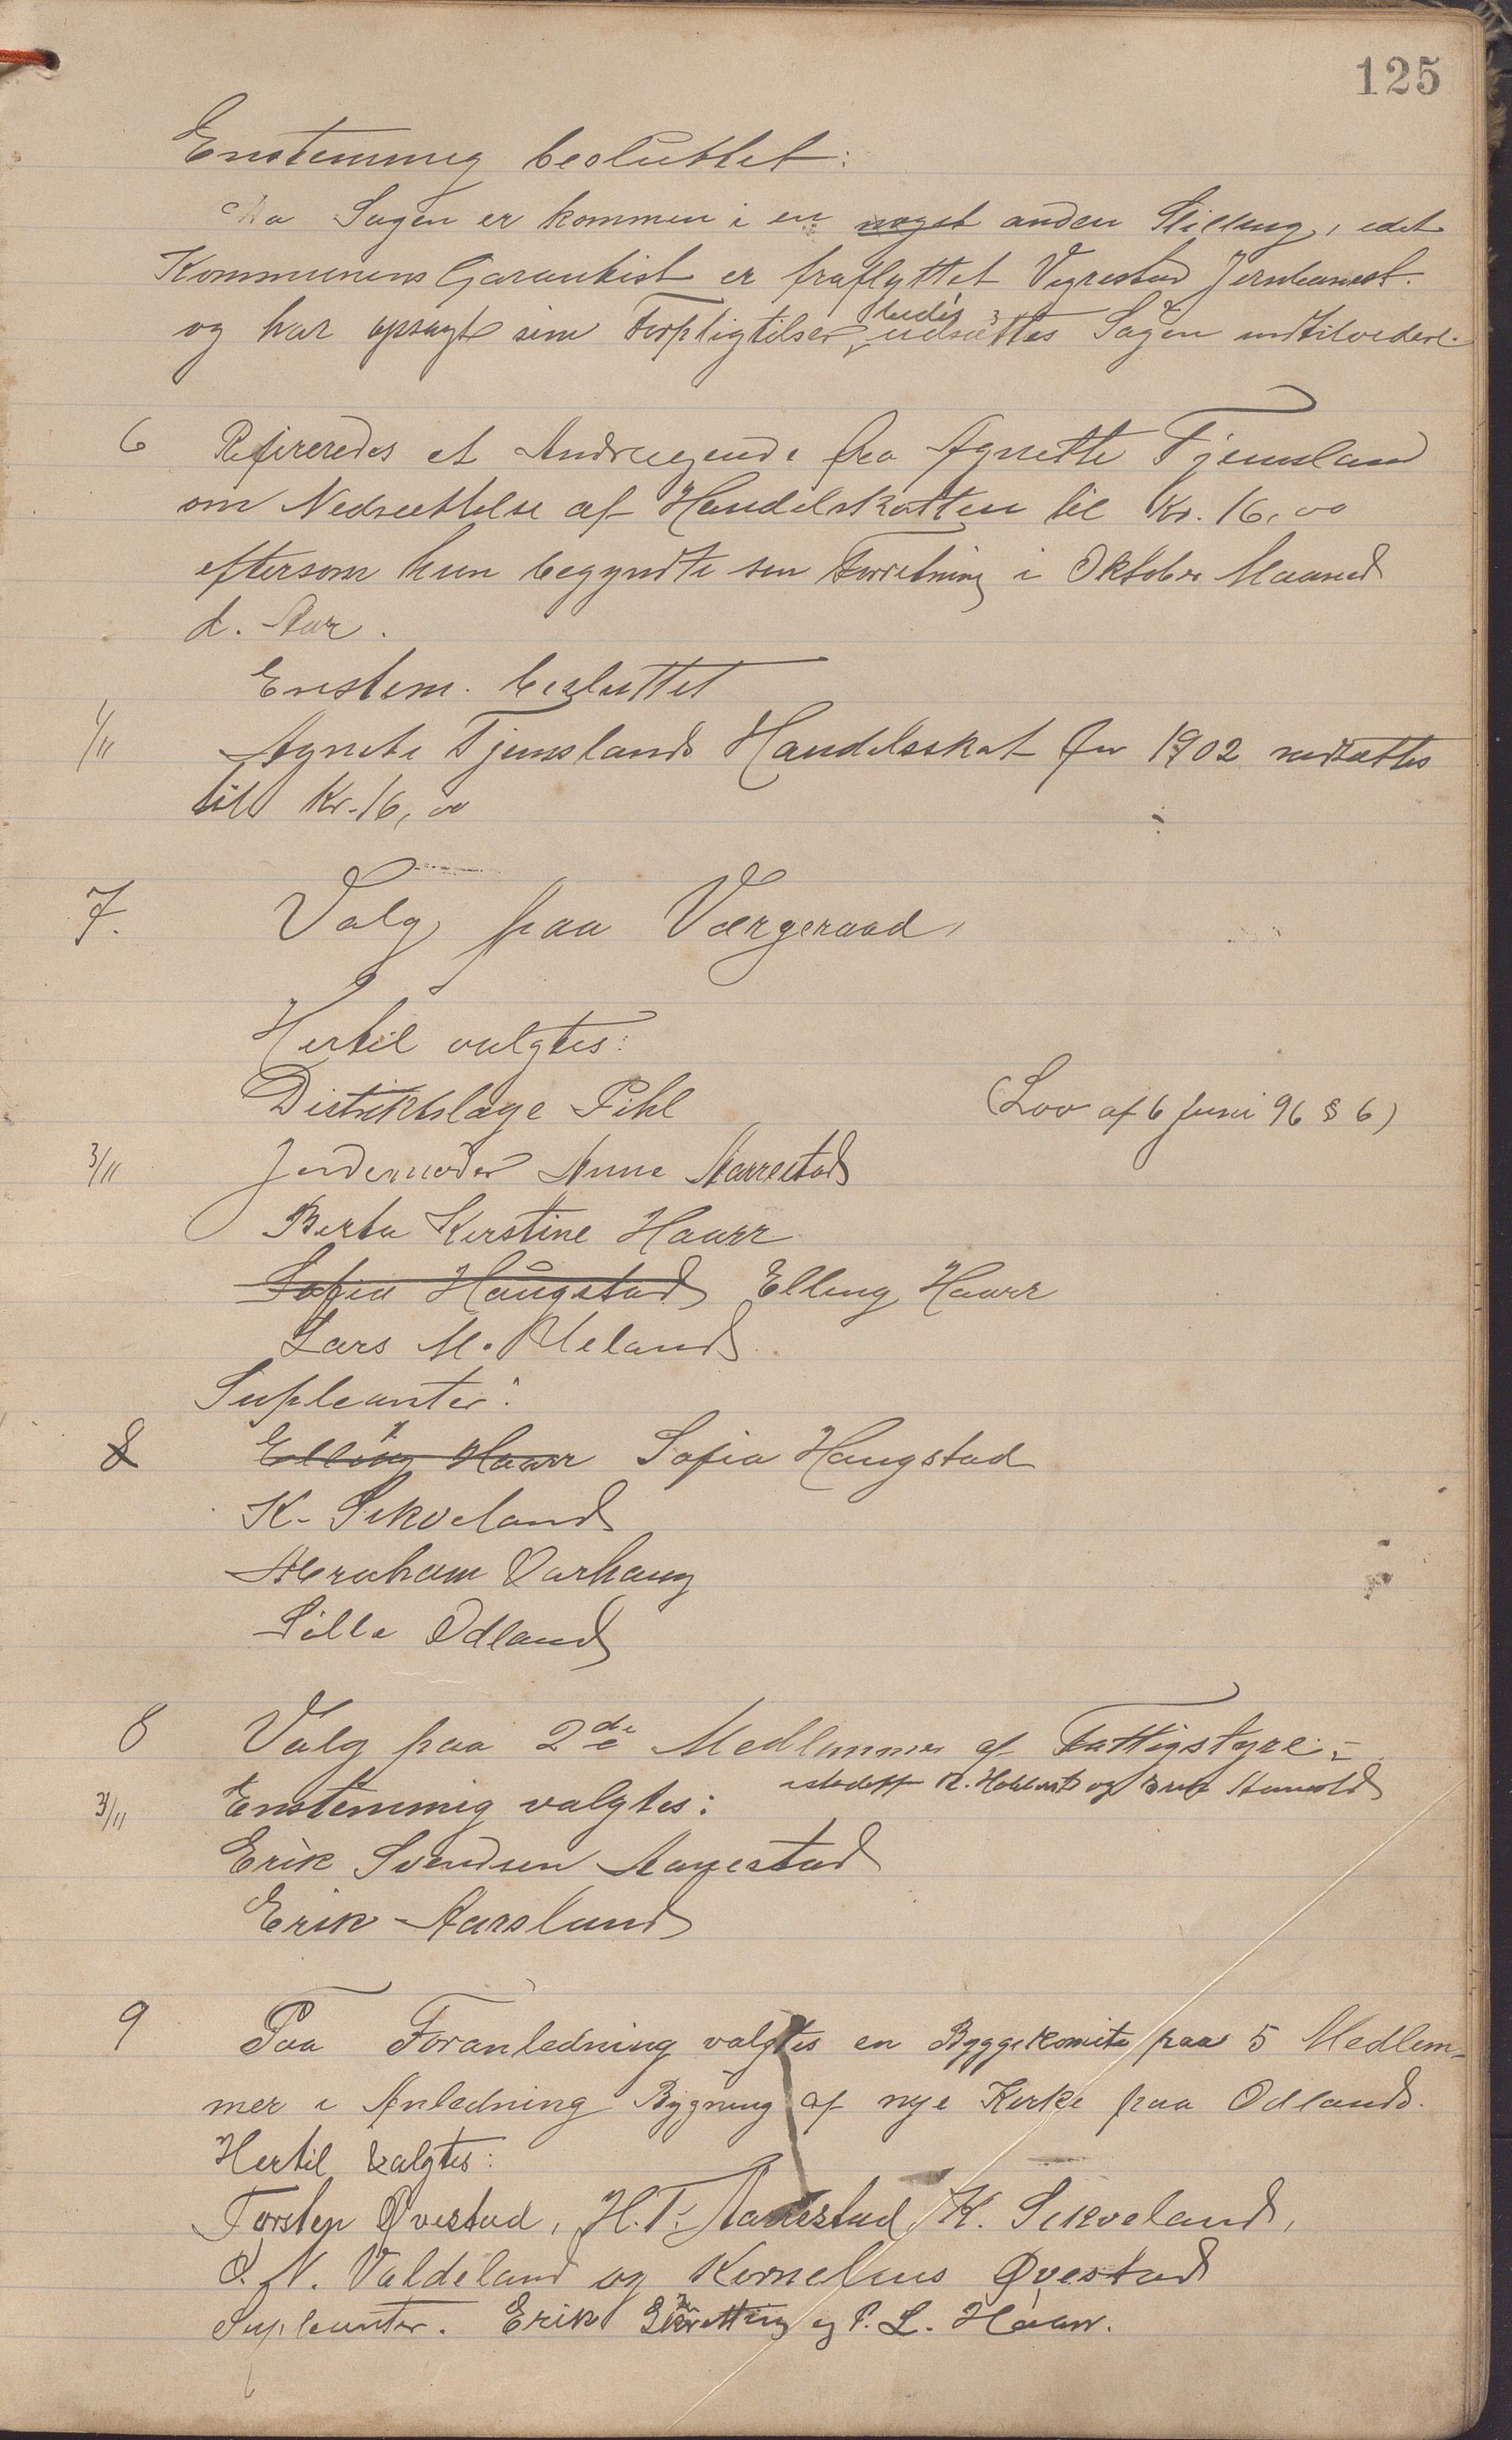 125
Enstemmig besluttet:
Da Sagen er kommen i en noget anden Stilling, idet
Kommunens Garantist er fraflyttet Vigrestad Jernbanest.
og har opsagt sine Forpligtelser, udsættes Sagen indtilvidere.
6 Refereredes et Andragende fra Agnette Tjemsland
om Nedsættelse af Handelskatten til Kr. 16,00
eftersom hun begyndte sin Forretning i Oktober Maaned
d. Aar.
Enstem. besluttet
1/11 Agnete Tjemslands Handelsskat for 1902 nedsættes
til Kr. 16,00
7. Valg paa Værgeraad,
Hertil valgtes:
Distriktslæge Pihl (Lov af 6 Juni 96 § 6)
3/11 Jordemoder Anne Aarrestad
Berta Kirstine Haarr
Sofia Haugstad Elling Haarr
Lars M. Ueland
Supleanter:
8 Elling Haarr Sofia Haugstad
K. Sikveland
Abraham Varhaug
Sille Odland
8 Valg paa 2de Medlemmer af Fattigstyre:
istedetf
3/11 Enstemmig valgtes:
Erik Svendsen Aarestad
Erik Aarsland
9 Paa Foranledning valgtes en Byggekomite paa 5 Medlem-
mer i Anledning Bygning af nye Kirke paa Odland.
Hertil valgtes:
Torsten Øvestad, H. T. Aarrestad, K. Sikveland,
O. N. Valdeland og Kornelius Øvestad
Supleanter. Erik og P. L. Haarr.